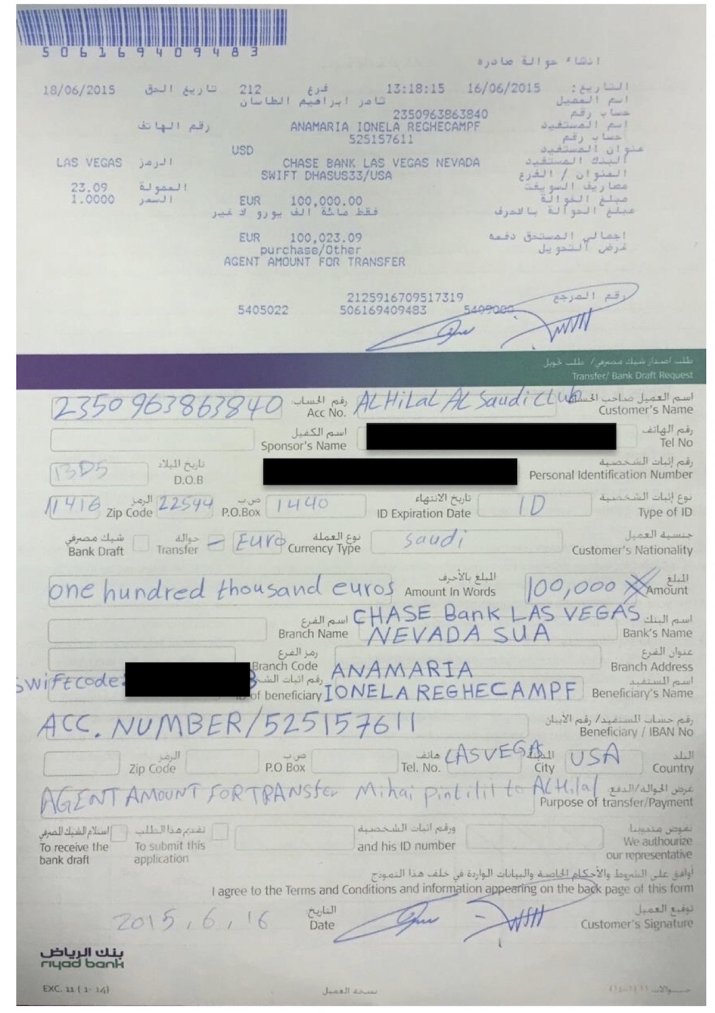 506169409483
انشاء حوالة صادره
التاريخ: 16/06/2015 13:18:15 فرع 212 تاريخ الحق 18/06/2015
اسم العميل نادر ابراهيم الطاسان
حساب رقم 2350963863840
اسم المستفيد ANAMARIA IONELA REGHECAMPF رقم الهاتف
حساب رقم 525157611
عنوان المستفيد USD
البنك المستفيد CHASE BANK LAS VEGAS NEVADA الرمز LAS VEGAS
العنوان / الفرع SWIFT DHASUS33/USA
مصاريف السويفت العمولة 23.09
مبلغ الحوالة EUR 100,000.00 السعر 1.0000
مبلغ الحوالة بالاحرف فقط مائة الف يورو لا غير
اجمالي المستحق دفعه EUR 100,023.09
غرض التحويل purchase/Other
AGENT AMOUNT FOR TRANSFER
رقم المرجع 2125916709517319
5405022 506169409483 5409000
طلب اصدار شيك مصرفي/ طلب تحويل
Transfer/ Bank Draft Request
اسم العميل صاحب الحساب AL HiLAL AL SAUdi CLUB رقم الحساب 2350963863840
Customer's Name Acc No.
رقم الهاتف اسم الكفيل
Tel No Sponsor's Name
رقم إثبات الشخصية تاريخ الميلاد
Personal Identification Number D.O.B
نوع إثبات الشخصية ID تاريخ الانتهاء 1440 ص.ب 22544 الرمز 11416
Type of ID ID Expiration Date P.O.Box Zip Code
جنسية العميل saudi نوع العملة EURO حوالة شيك مصرفي
Customer's Nationality Currency Type Transfer Bank Draft
المبلغ 100,000 المبلغ بالأحرف one hundred thousand euros
Amount Amount In Words
اسم البنك CHASE Bank LAS VEGAS اسم الفرع
NEVADA SUA
Bank's Name Branch Name
عنوان الفرع رمز الفرع
Branch Address Branch Code
اسم المستفيد ANAMARIA رقم اثبات swiftcode
IONELA REGHECAMPF
Beneficiary's Name of beneficiary
رقم حساب المستفيد/ رقم الآيبان ACC. NUMBER/525157611
Beneficiary / IBAN No
البلد USA LAS VEGA هاتف ص ب الرمز
Country City Tel. No. P.O Box Zip Code
غرض الحوالة/الدفع AGENT AMOUNT FOR TRANSFER Mihai pintilii to AL Hilal
Purpose of transfer/Payment
نفوض مندوبنا ورقم اثبات الشخصية تقديم هذا الطلب استلام الشيك المصرفي
We authourize and his ID number To submit this To receive the
our representative application bank draft
أوافق على الشروط والأحكام الخاصة والبيانات الواردة في خلف هذا النموذج
I agree to the Terms and Conditions and information appearing on the back page of this form
توقيع العميل التاريخ 2015, 6, 16
Customer's Signature Date
بنك الرياض
riyad bank
EXC. 11 ( 1- 14)
نسخة العميل